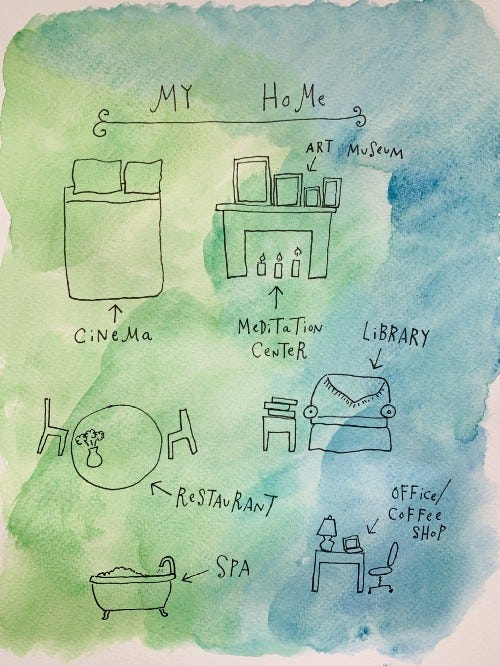 MY HoMe
ART MuSeuM
CiNeMa
MeDiTaTioN
CeNTeR
LiBRARY
ReSTAuRaNT
OFFice/
CoFFee
SHoP
SPA